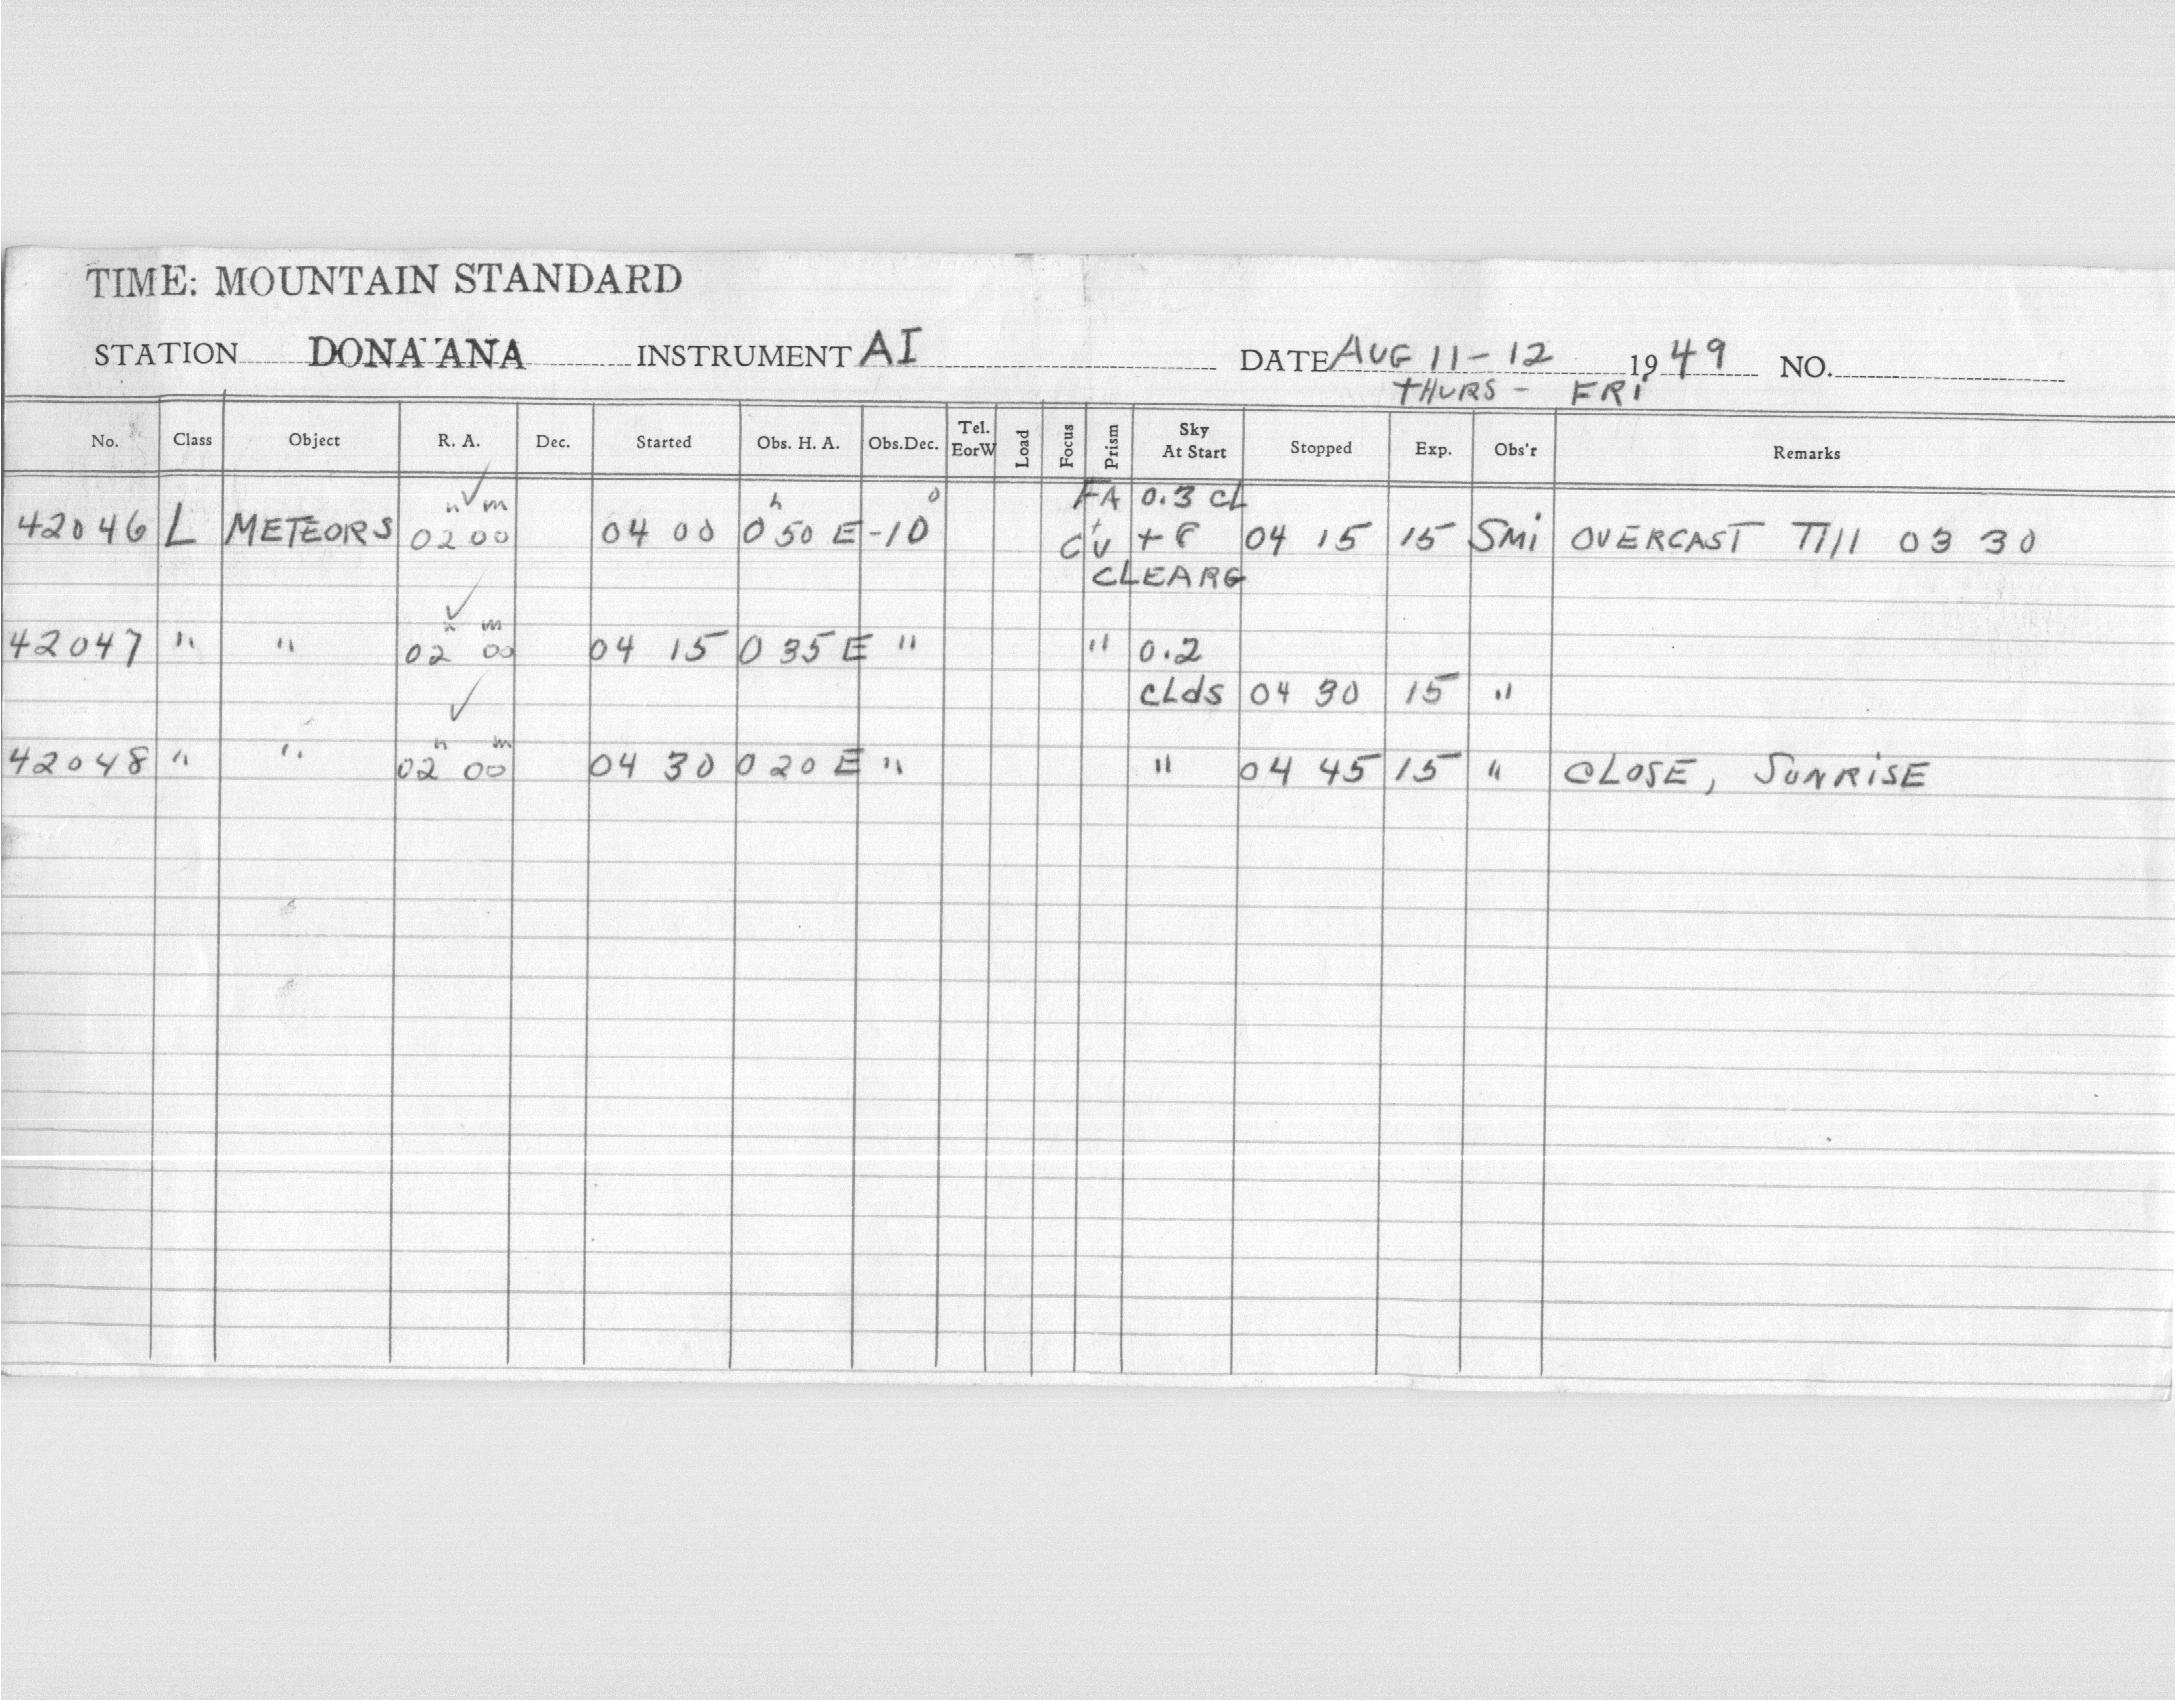 TIME: MOUNTAIN STANDARD
STATION DONA ANA INSTRUMENT AI DATE AUG 11-12 1949 NO.
THURS - FRI
No. Class Object R. A. Dec. Started Obs. H. A. Obs.Dec. Tel. EorW Load Focus Prism Sky At Start Stopped Exp. Obs'r Remarks
h m h o FA 0.3 CL
42046 L METEORS 02 00 04 00 0 50 E -10 04 15 15 SMi OVERCAST Till 03 30
CLEARG
h m
42047 " " 02 00 04 15 0 35 E " " 0.2
CLds 04 30 15 "
h m
42048 " " 02 00 04 30 0 20 E " " 04 45 15 " CLOSE, SUNRiSE